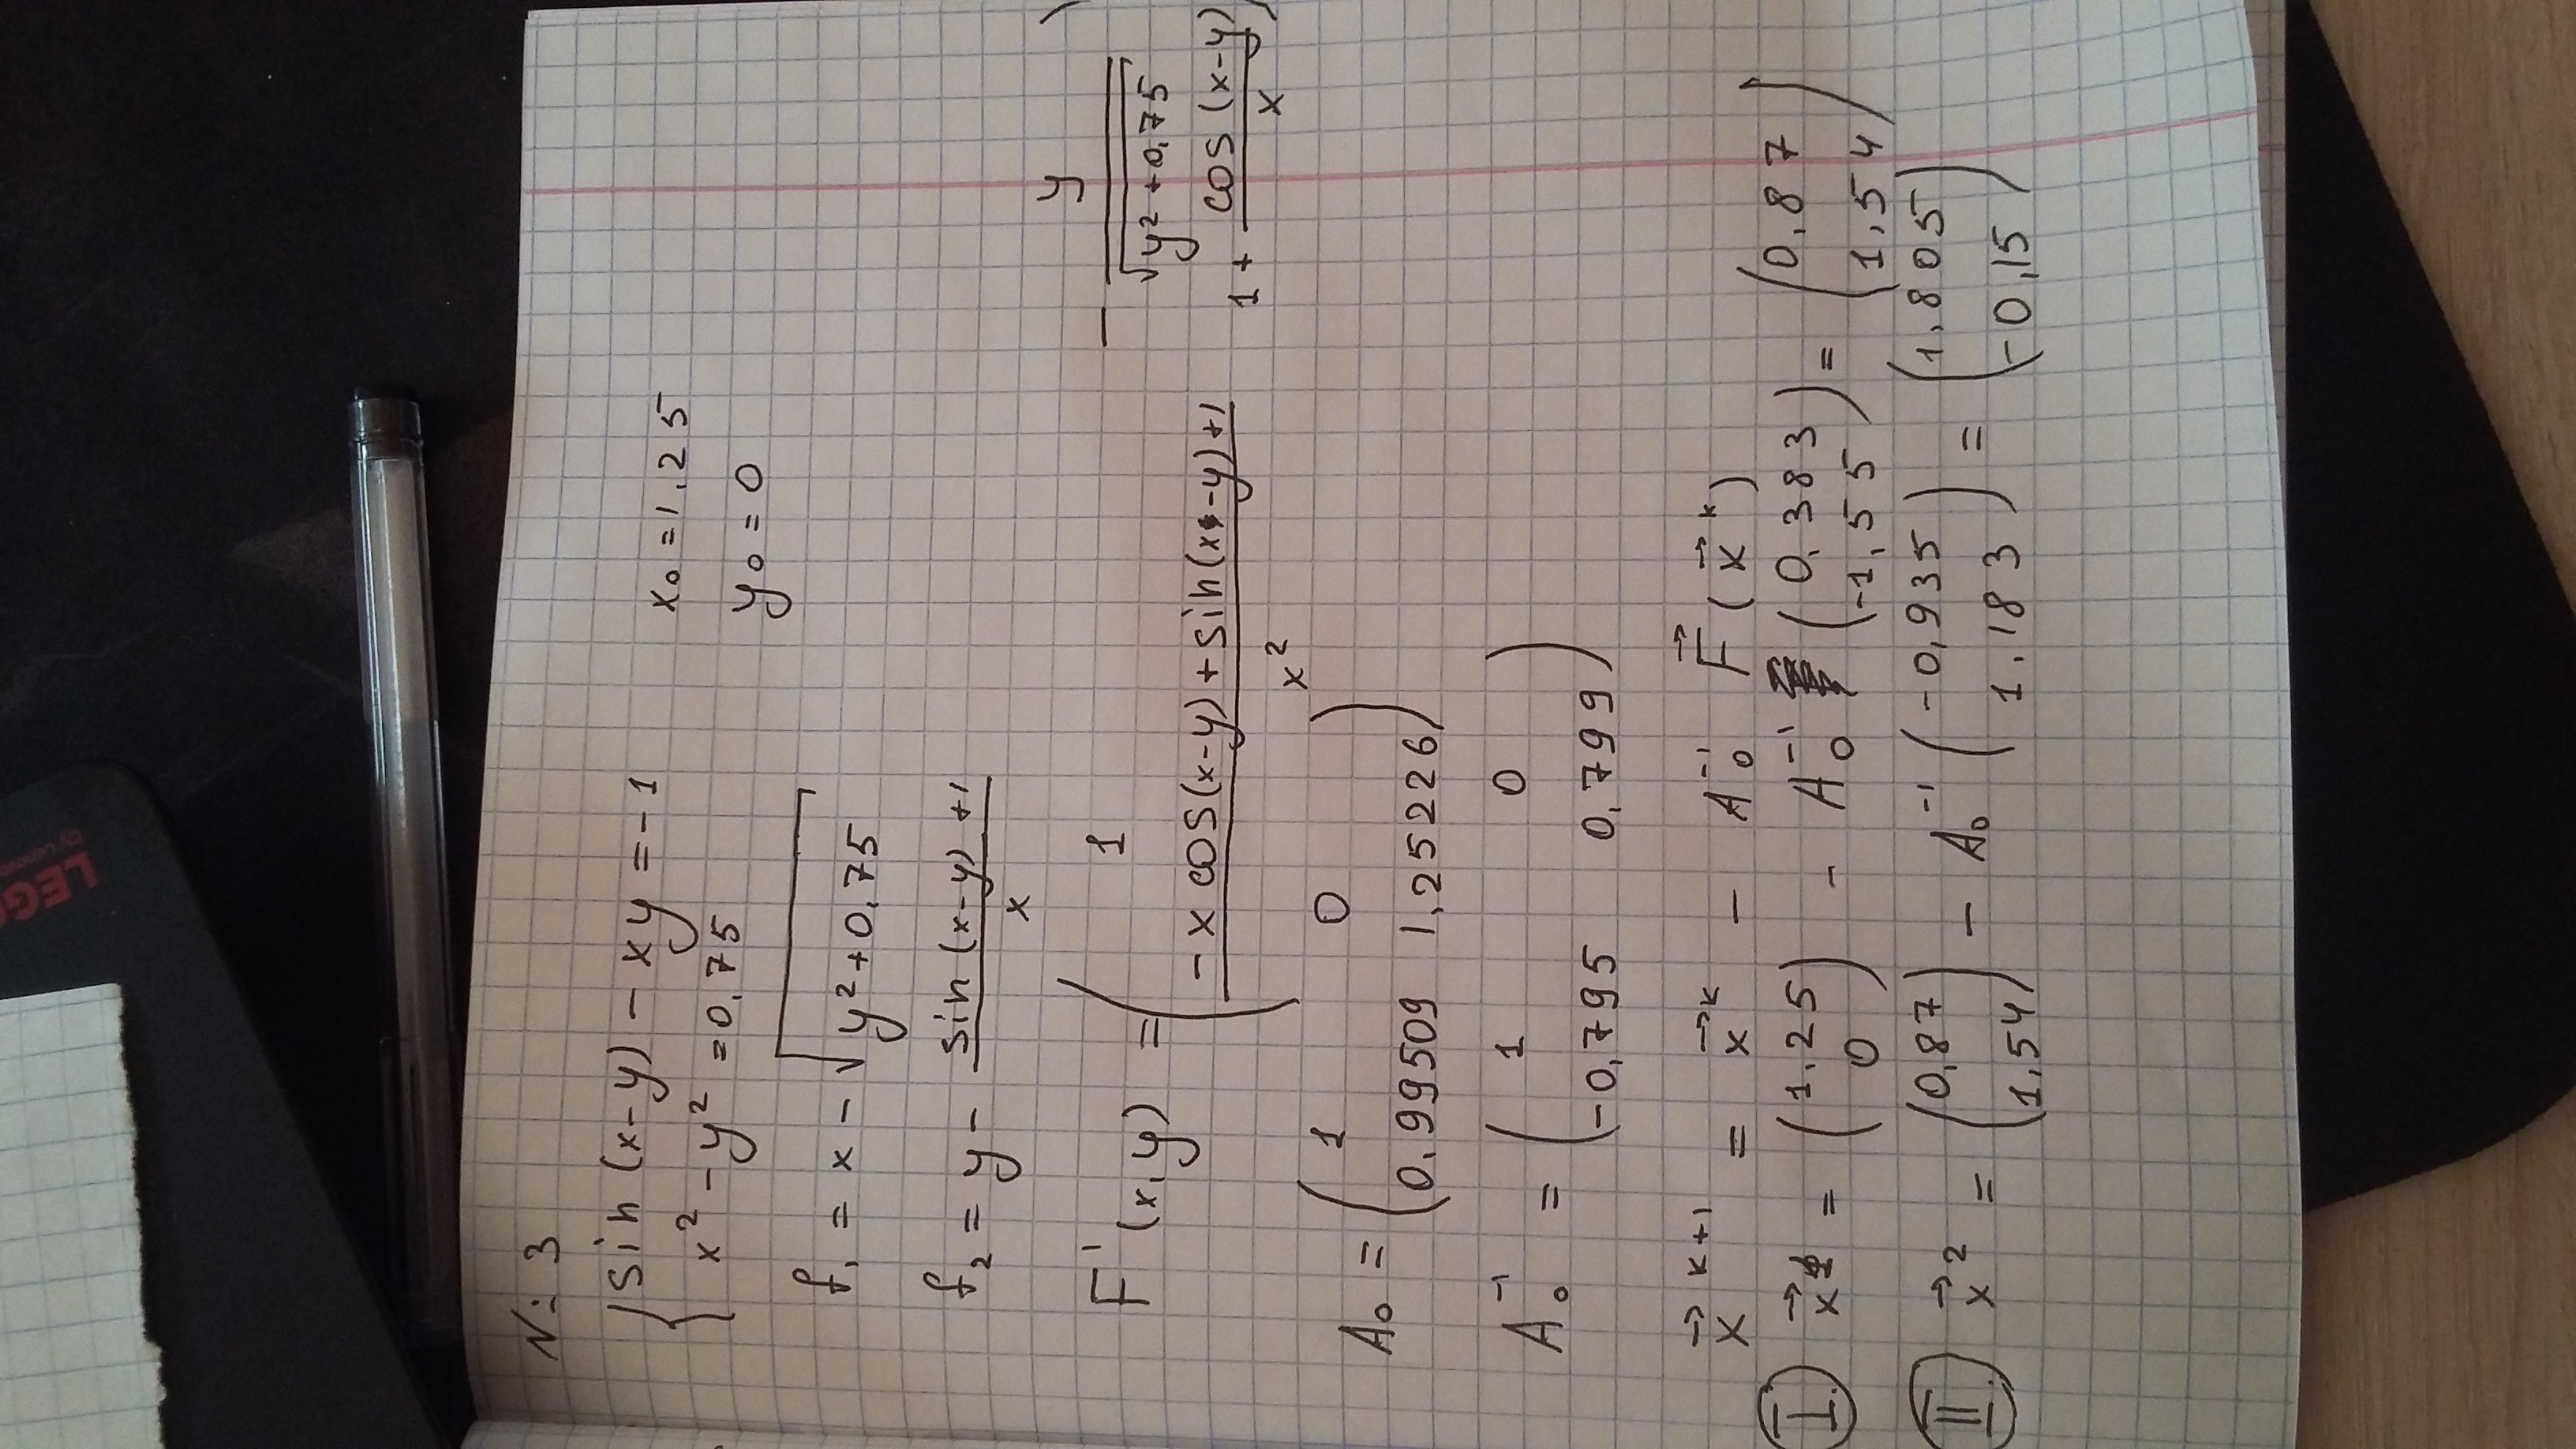 LEG
N: 3
sin (x-y) - xy = -1
x² - y² = 0,75
x₀ = 1,25
y₀ = 0
f₁ = x - √(y² + 0,75)
f₂ = y - (sin (x-y) + 1) / x
F'(x,y) = ( 1   - y / √(y² + 0,75)
(-x cos(x-y) + sin(x-y) + 1) / x²   1 + cos (x-y) / x )
A₀ = ( 1   0
0,99509   1,25226 )
A₀⁻¹ = ( 1   0
-0,795   0,799 )
x⃗ ᵏ⁺¹ = x⃗ ᵏ - A₀⁻¹ F⃗ ( x⃗ ᵏ )
I. x⃗ 1 = ( 1,25 ; 0 ) - A₀⁻¹ ( 0,383 ; -1,55 ) = ( 0,87 ; 1,54 )
II. x⃗ ² = ( 0,87 ; 1,54 ) - A₀⁻¹ ( -0,935 ; 1,183 ) = ( 1,805 ; -0,15 )